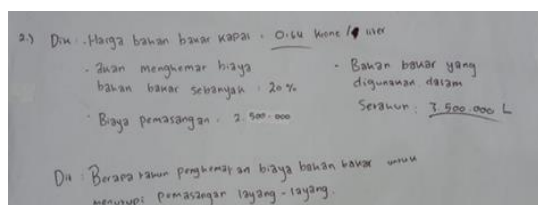 2.) Dik : . Harga bahan bakar kapal : 0.64 krone / liter
. akan menghemat biaya bahan bakar sebanyak : 20 %
. Biaya pemasangan : 2.500.000
- Bahan bakar yang digunakan dalam Setahun : 3.500.000 L
Dit : Berapa tahun penghematan biaya bahan bakar untuk
menutupi pemasangan layang-layang.